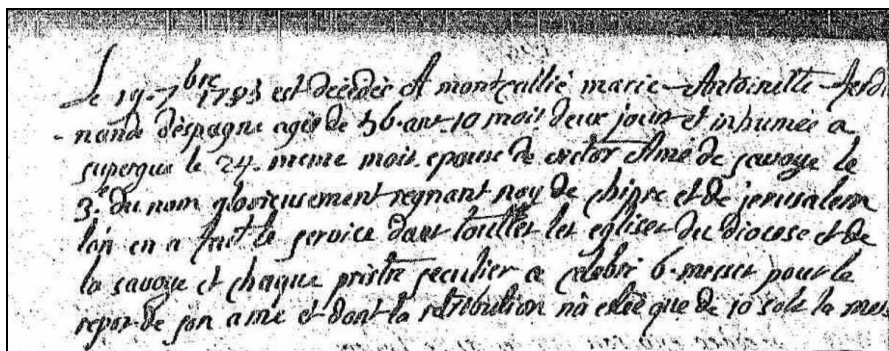 Le 19. 7bre 1785 est décédée A montcallié marie Antoinette ferdi
nande d'espagne agée de 56. ans. 10 mois deux jours et inhumée a
supergue le 24. meme mois. epouse de victor Amé de savoye le
3e du nom glorieusement regnant roy de chipre et de jerusalem
l'on en a fait le service dans touttes les eglises du diocese et de
la savoye et chaque pristre seculier a celebré 6. messes pour le
repos de son ame et dont la retribution n'a etée que de 10 sols la mes